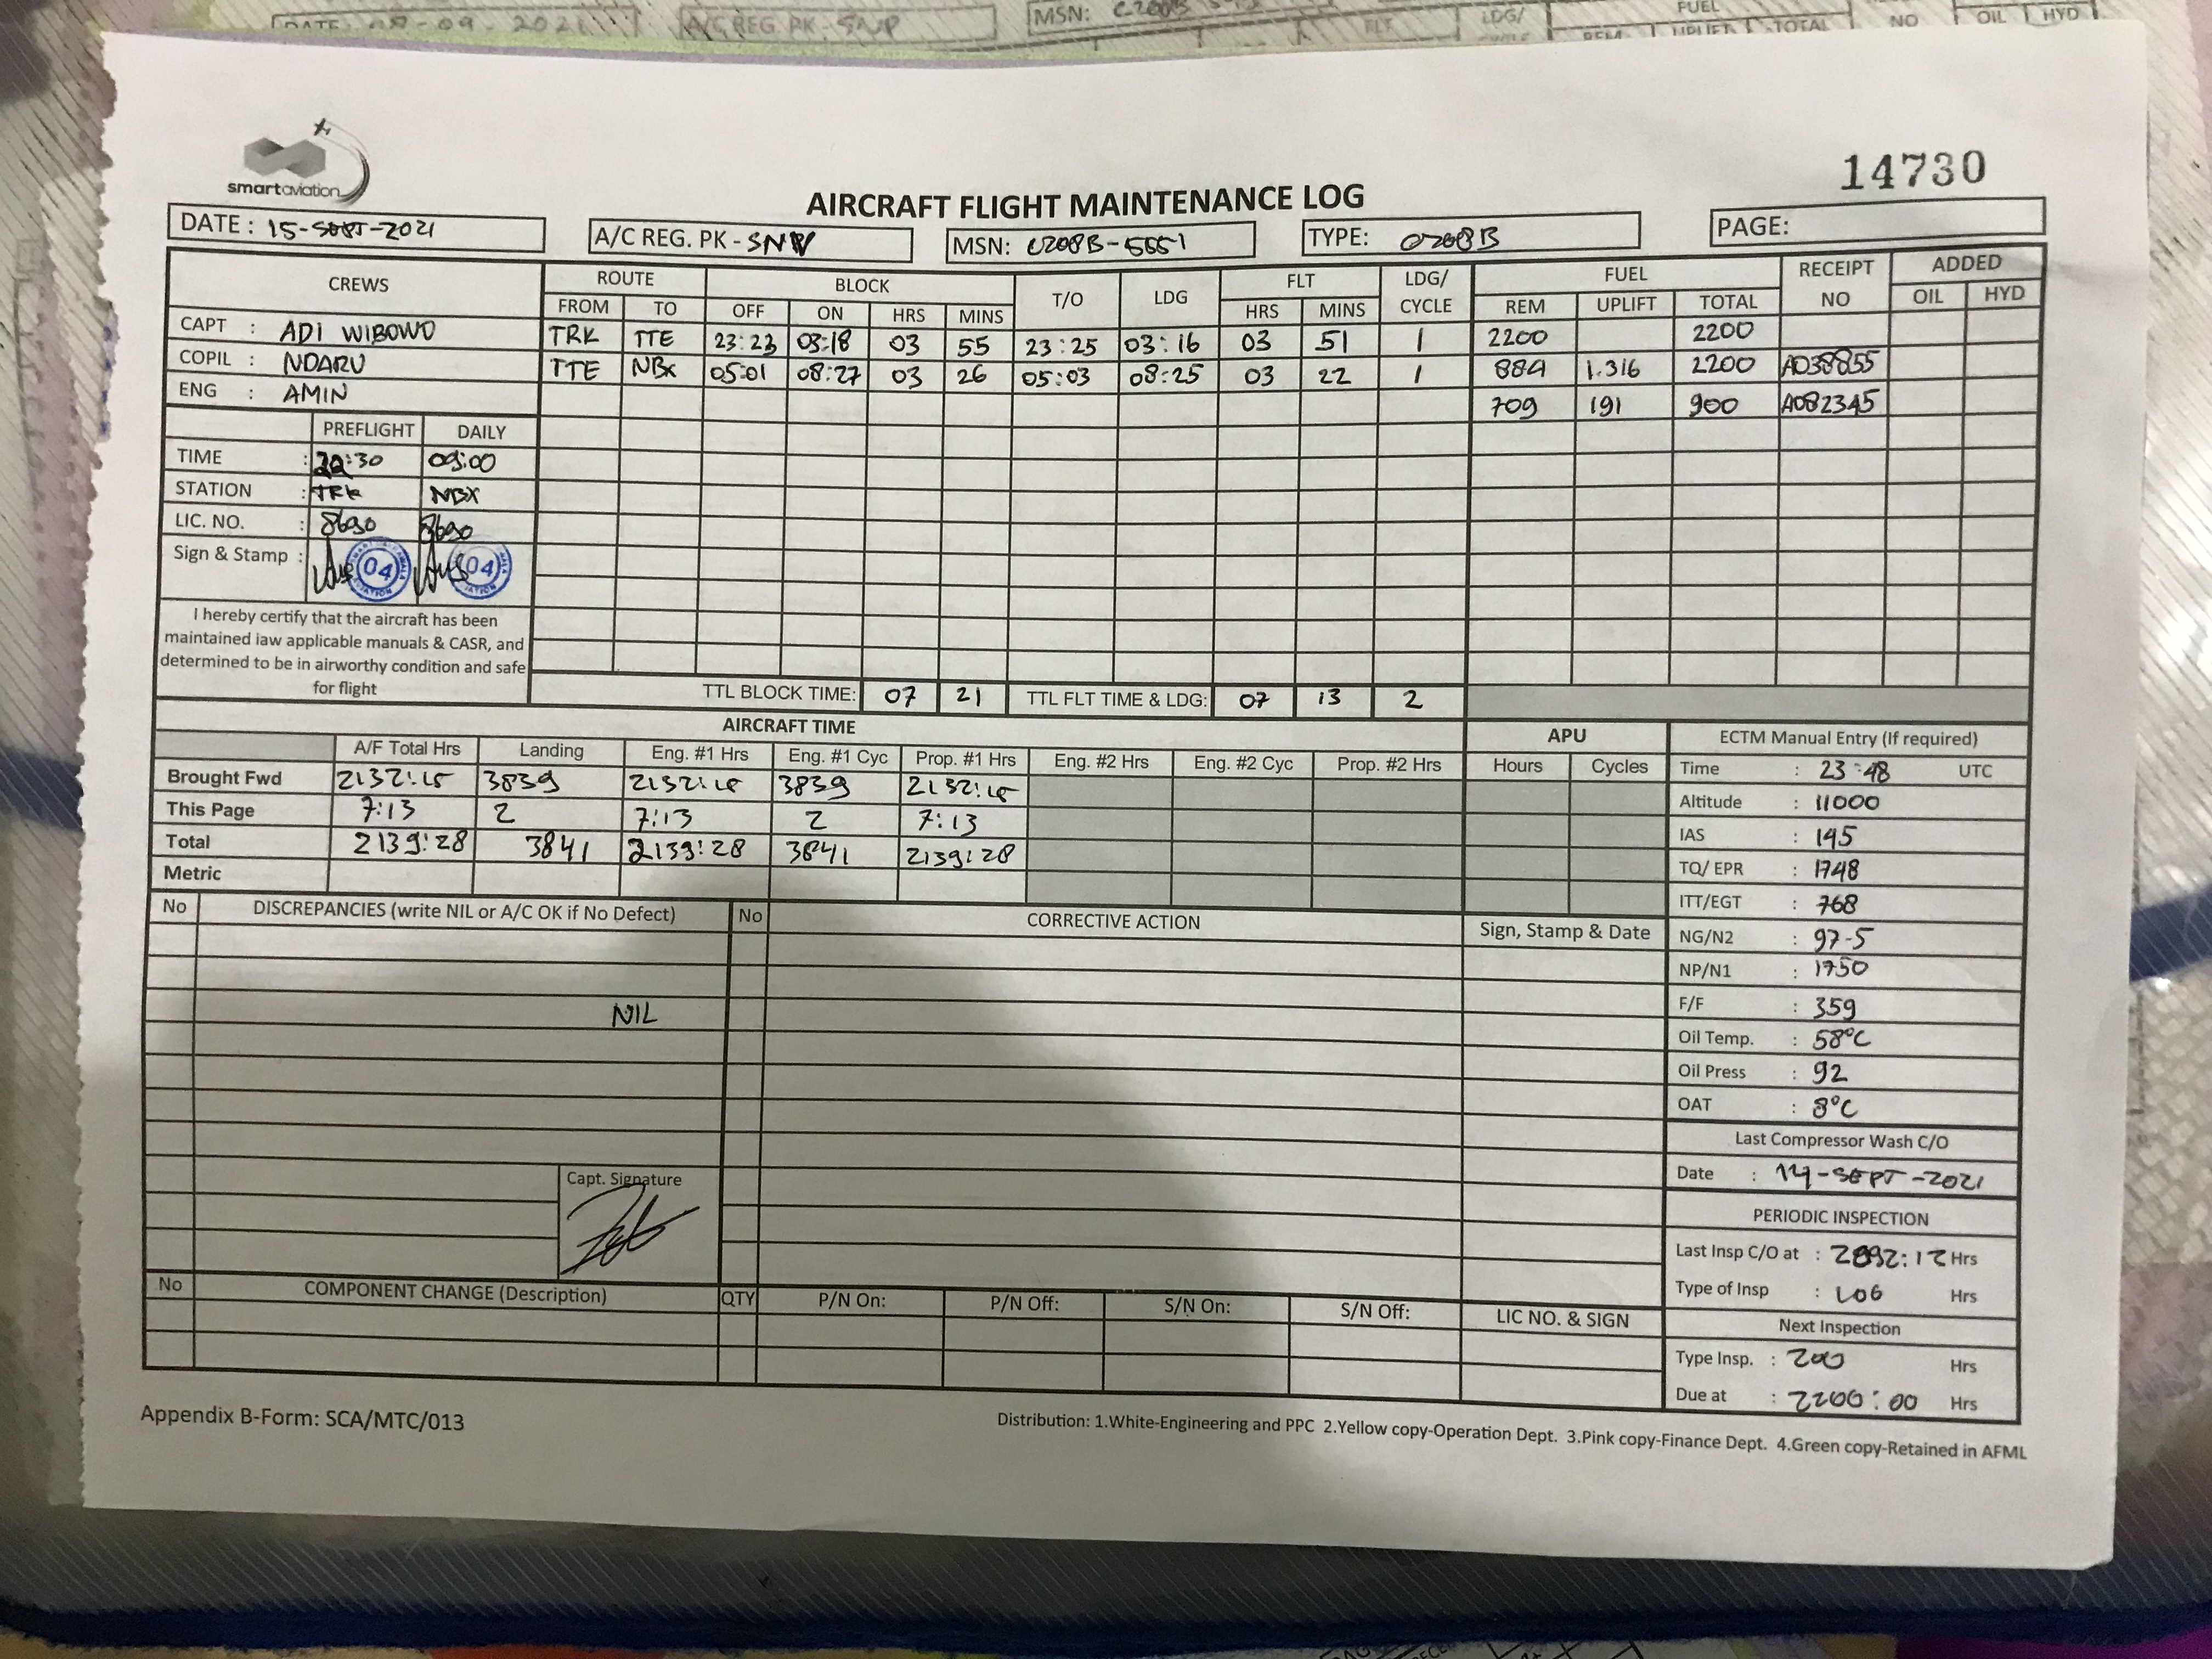 DATE: 07-09-2021 A/C REG. PK-SNP MSN: C208B FLT LDG/ FUEL NO OIL HYD
REM UPLIFT TOTAL
smartaviation
14730
AIRCRAFT FLIGHT MAINTENANCE LOG
DATE : 15-SEPT-2021 A/C REG. PK - SNP MSN: C208B-5551 TYPE: C208B PAGE:
CREWS ROUTE BLOCK T/O LDG FLT LDG/ CYCLE FUEL RECEIPT NO ADDED
FROM TO OFF ON HRS MINS HRS MINS REM UPLIFT TOTAL OIL HYD
CAPT : ADI WIBOWO TRK TTE 23:23 03:18 03 55 23:25 03:16 03 51 1 2200 2200
COPIL : NDARU TTE NBX 05:01 08:27 03 26 05:03 08:25 03 22 1 884 1.316 2200 A038855
ENG : AMIN 709 191 900 A082345
PREFLIGHT DAILY
TIME : 22:30 09:00
STATION : TRK NBX
LIC. NO. : 8690 8690
Sign & Stamp : 04 04
I hereby certify that the aircraft has been
maintained iaw applicable manuals & CASR, and
determined to be in airworthy condition and safe
for flight
TTL BLOCK TIME: 07 21 TTL FLT TIME & LDG: 07 13 2
AIRCRAFT TIME APU ECTM Manual Entry (If required)
A/F Total Hrs Landing Eng. #1 Hrs Eng. #1 Cyc Prop. #1 Hrs Eng. #2 Hrs Eng. #2 Cyc Prop. #2 Hrs Hours Cycles
Brought Fwd 2132:15 3839 2132:15 3839 2132:15
This Page 7:13 2 7:13 2 7:13
Total 2139:28 3841 2139:28 3841 2139:28
Metric
Time : 23:48 UTC
Altitude : 11000
IAS : 145
TQ/ EPR : 1748
ITT/EGT : 768
NG/N2 : 97-5
NP/N1 : 1750
F/F : 359
Oil Temp. : 58°C
Oil Press : 92
OAT : 8°C
Last Compressor Wash C/O
Date : 14-SEPT-2021
PERIODIC INSPECTION
Last Insp C/O at : 2092:12 Hrs
Type of Insp : 100 Hrs
Next Inspection
Type Insp. : 200 Hrs
Due at : 2200:00 Hrs
No DISCREPANCIES (write NIL or A/C OK if No Defect) No CORRECTIVE ACTION Sign, Stamp & Date
NIL
Capt. Signature
No COMPONENT CHANGE (Description) QTY P/N On: P/N Off: S/N On: S/N Off: LIC NO. & SIGN
Appendix B-Form: SCA/MTC/013
Distribution: 1.White-Engineering and PPC 2.Yellow copy-Operation Dept. 3.Pink copy-Finance Dept. 4.Green copy-Retained in AFML